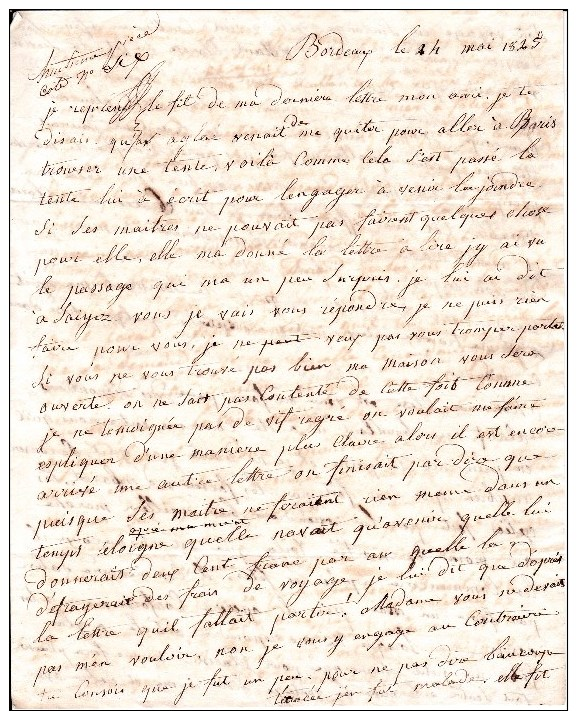 Bordeaux le 24 mai 1825
coté no Six
je reprens le fil de ma derniere lettre mon ami. je te
disais qu' aglaé venait de me quiter pour aller à Paris
trouver une tente, voilà comme cela s'est passé la
tente lui à écrit pour l'engager à venir la joindre
Si Ses maitres ne pouvait pas faire quelque chose
pour elle, elle m'a donné la lettre à lire j'y ai vu
le passage qui m'a un peu Surpris. je lui ai dit
vous je vais vous répondre, je ne puis rien
faire pour vous, je ne veux pas vous tromper partez
Si vous ne vous trouve pas bien ma maison vous Sera
ouverte. on ne fait pas Contente de cette fois Comme
je ne temoignée pas de vif regré on voulait me faire
expliquer d'une maniere plus Claire alors il est encore
arrivé une autre lettre on finisait par dire que
puisque Ses maitre ne feraient rien meme dans un
temps éloigné quelle n'avait qu'a venir quelle lui
donnerait deux Cent franc par an quelle la
défrayerait des frais de voyage je lui dit que d'après
la lettre qu'il fallait partir! Madame vous ne devait
pas m'en vouloir, non je vous y engage au Contraire.
tu Consois que je fut un peu pour ne pas dire beaucoup
j'en fus malade. elle fit